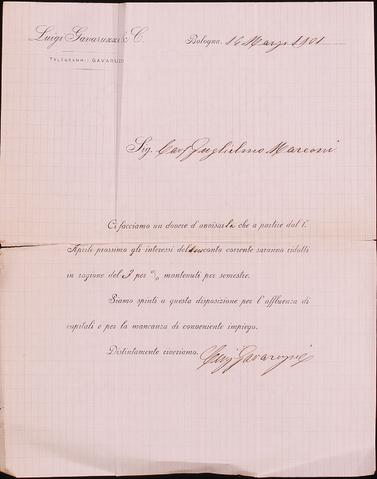 Luigi Gavaruzzi & C.
TELEGRAMMI: GAVARUZZI
Bologna, 16 Marzo 1901
Sig. Cav. Guglielmo Marconi
Ci facciamo un dovere d'avvisarla che a partire dal 1.º
Aprile prossimo gli interessi del suo conto corrente saranno ridotti
in ragione del 3 per % mantenuti per semestre.
Siamo spinti a questa disposizione per l'affluenza di
capitali e per la mancanza di conveniente impiego.
Distintamente riveriamo.
Luigi Gavaruzzi